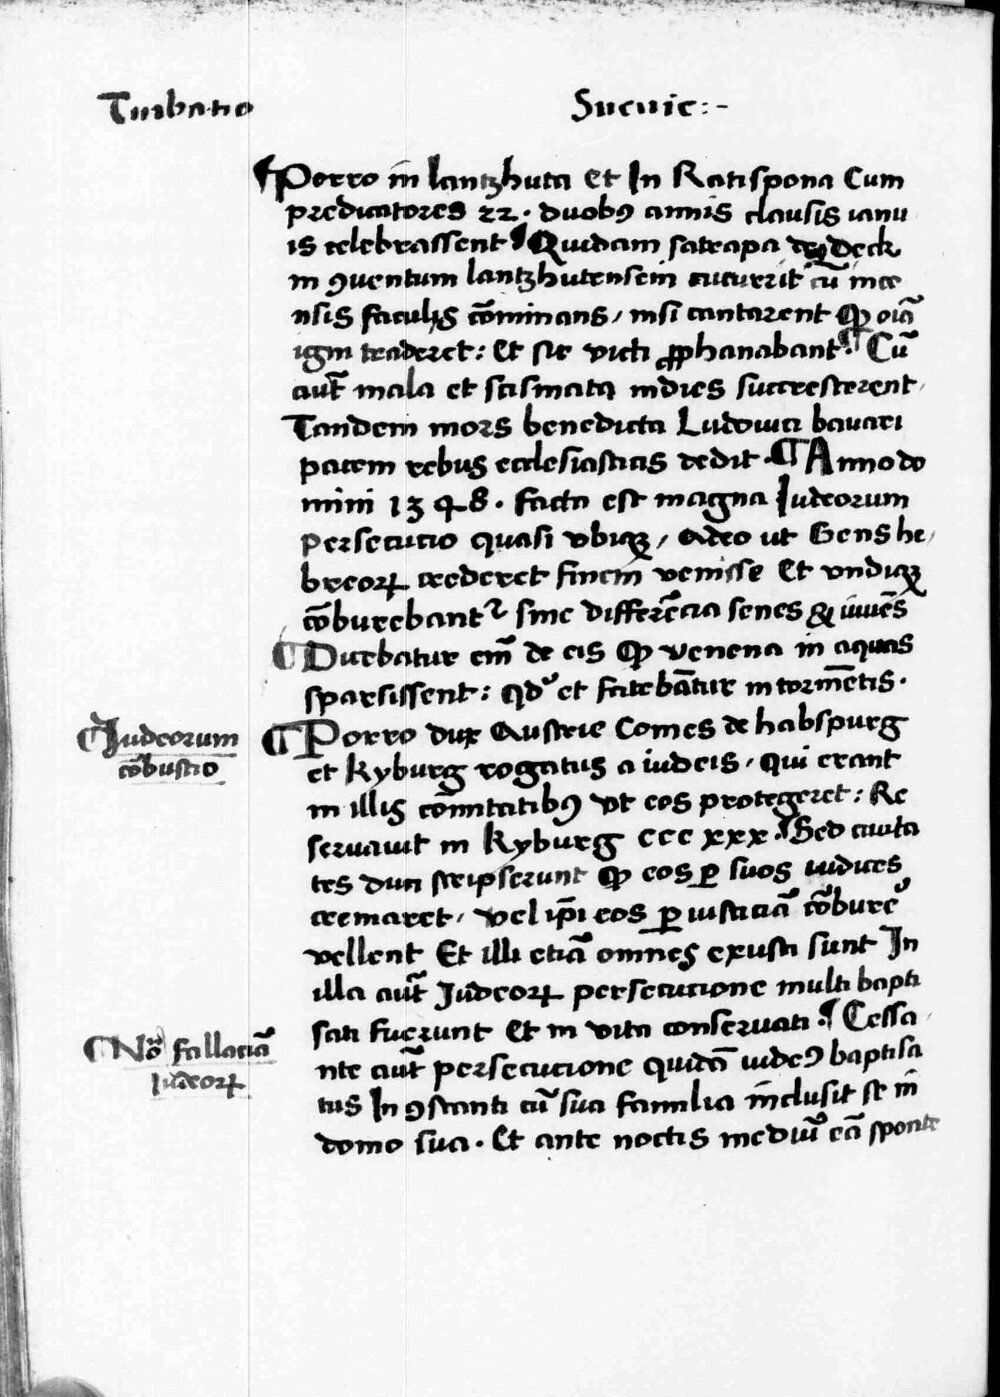 Turbatio Suevie:-
¶Porro in lantzhuta et In Ratispona Cum
predicatores 22. duobꝰ annis clausis ianu
is celebrassent ¶Quidam satrapa de deck
in ꝯventum lantzhutensem cucurrit cū ince
nsis faculis cōminans, nisi cantarent ꝙ oīa
igni traderet: Et sic victi ꝓphanabant. ¶Cū
aūt mala et scismata indies succrescerent.
Tandem mors benedicta Ludovici bavari
pacem rebus ecclesiasticis dedit. ¶Anno do
mini 1348. facta est magna Iudeorum
persecutio quasi ubiqꝫ, Adeo ut Gens he,
breorꝝ crederet finem venisse Et undiqꝫ
cōburebant᷑ sine differēcia senes & iuuēs
¶Durbatur em̄ de eis ꝙ venena in aquas
sparsissent: qd' et fatebātur in tormētis.
¶Iudeorum
cōbustio
¶Porro dux Austrie Comes de habspurg
et kyburg rogatus a iudeis, qui erant
in illis comitatibꝰ vt eos protegeret: Re
servavit in kyburg CCC xxx. ¶Sed civita
tes duci scripserunt ꝙ eos ꝑ suos iudices
cremaret, vel ip̄i eos ꝑ iusticiā cōbure᷑
vellent Et illi etiā omnes exusti sunt In
illa aūt Iudeorꝝ persecucione multi bapti
sati fuerunt Et in vita conservati. ¶Cessa,
¶No᷑ fallaciā
Iudeorꝝ
nte aūt persecucione quidā iudeꝰ baptisa
tus In ꝯstanti cū sua familia inclusit se in
domo sua. Et ante noctis mediū eā sponte